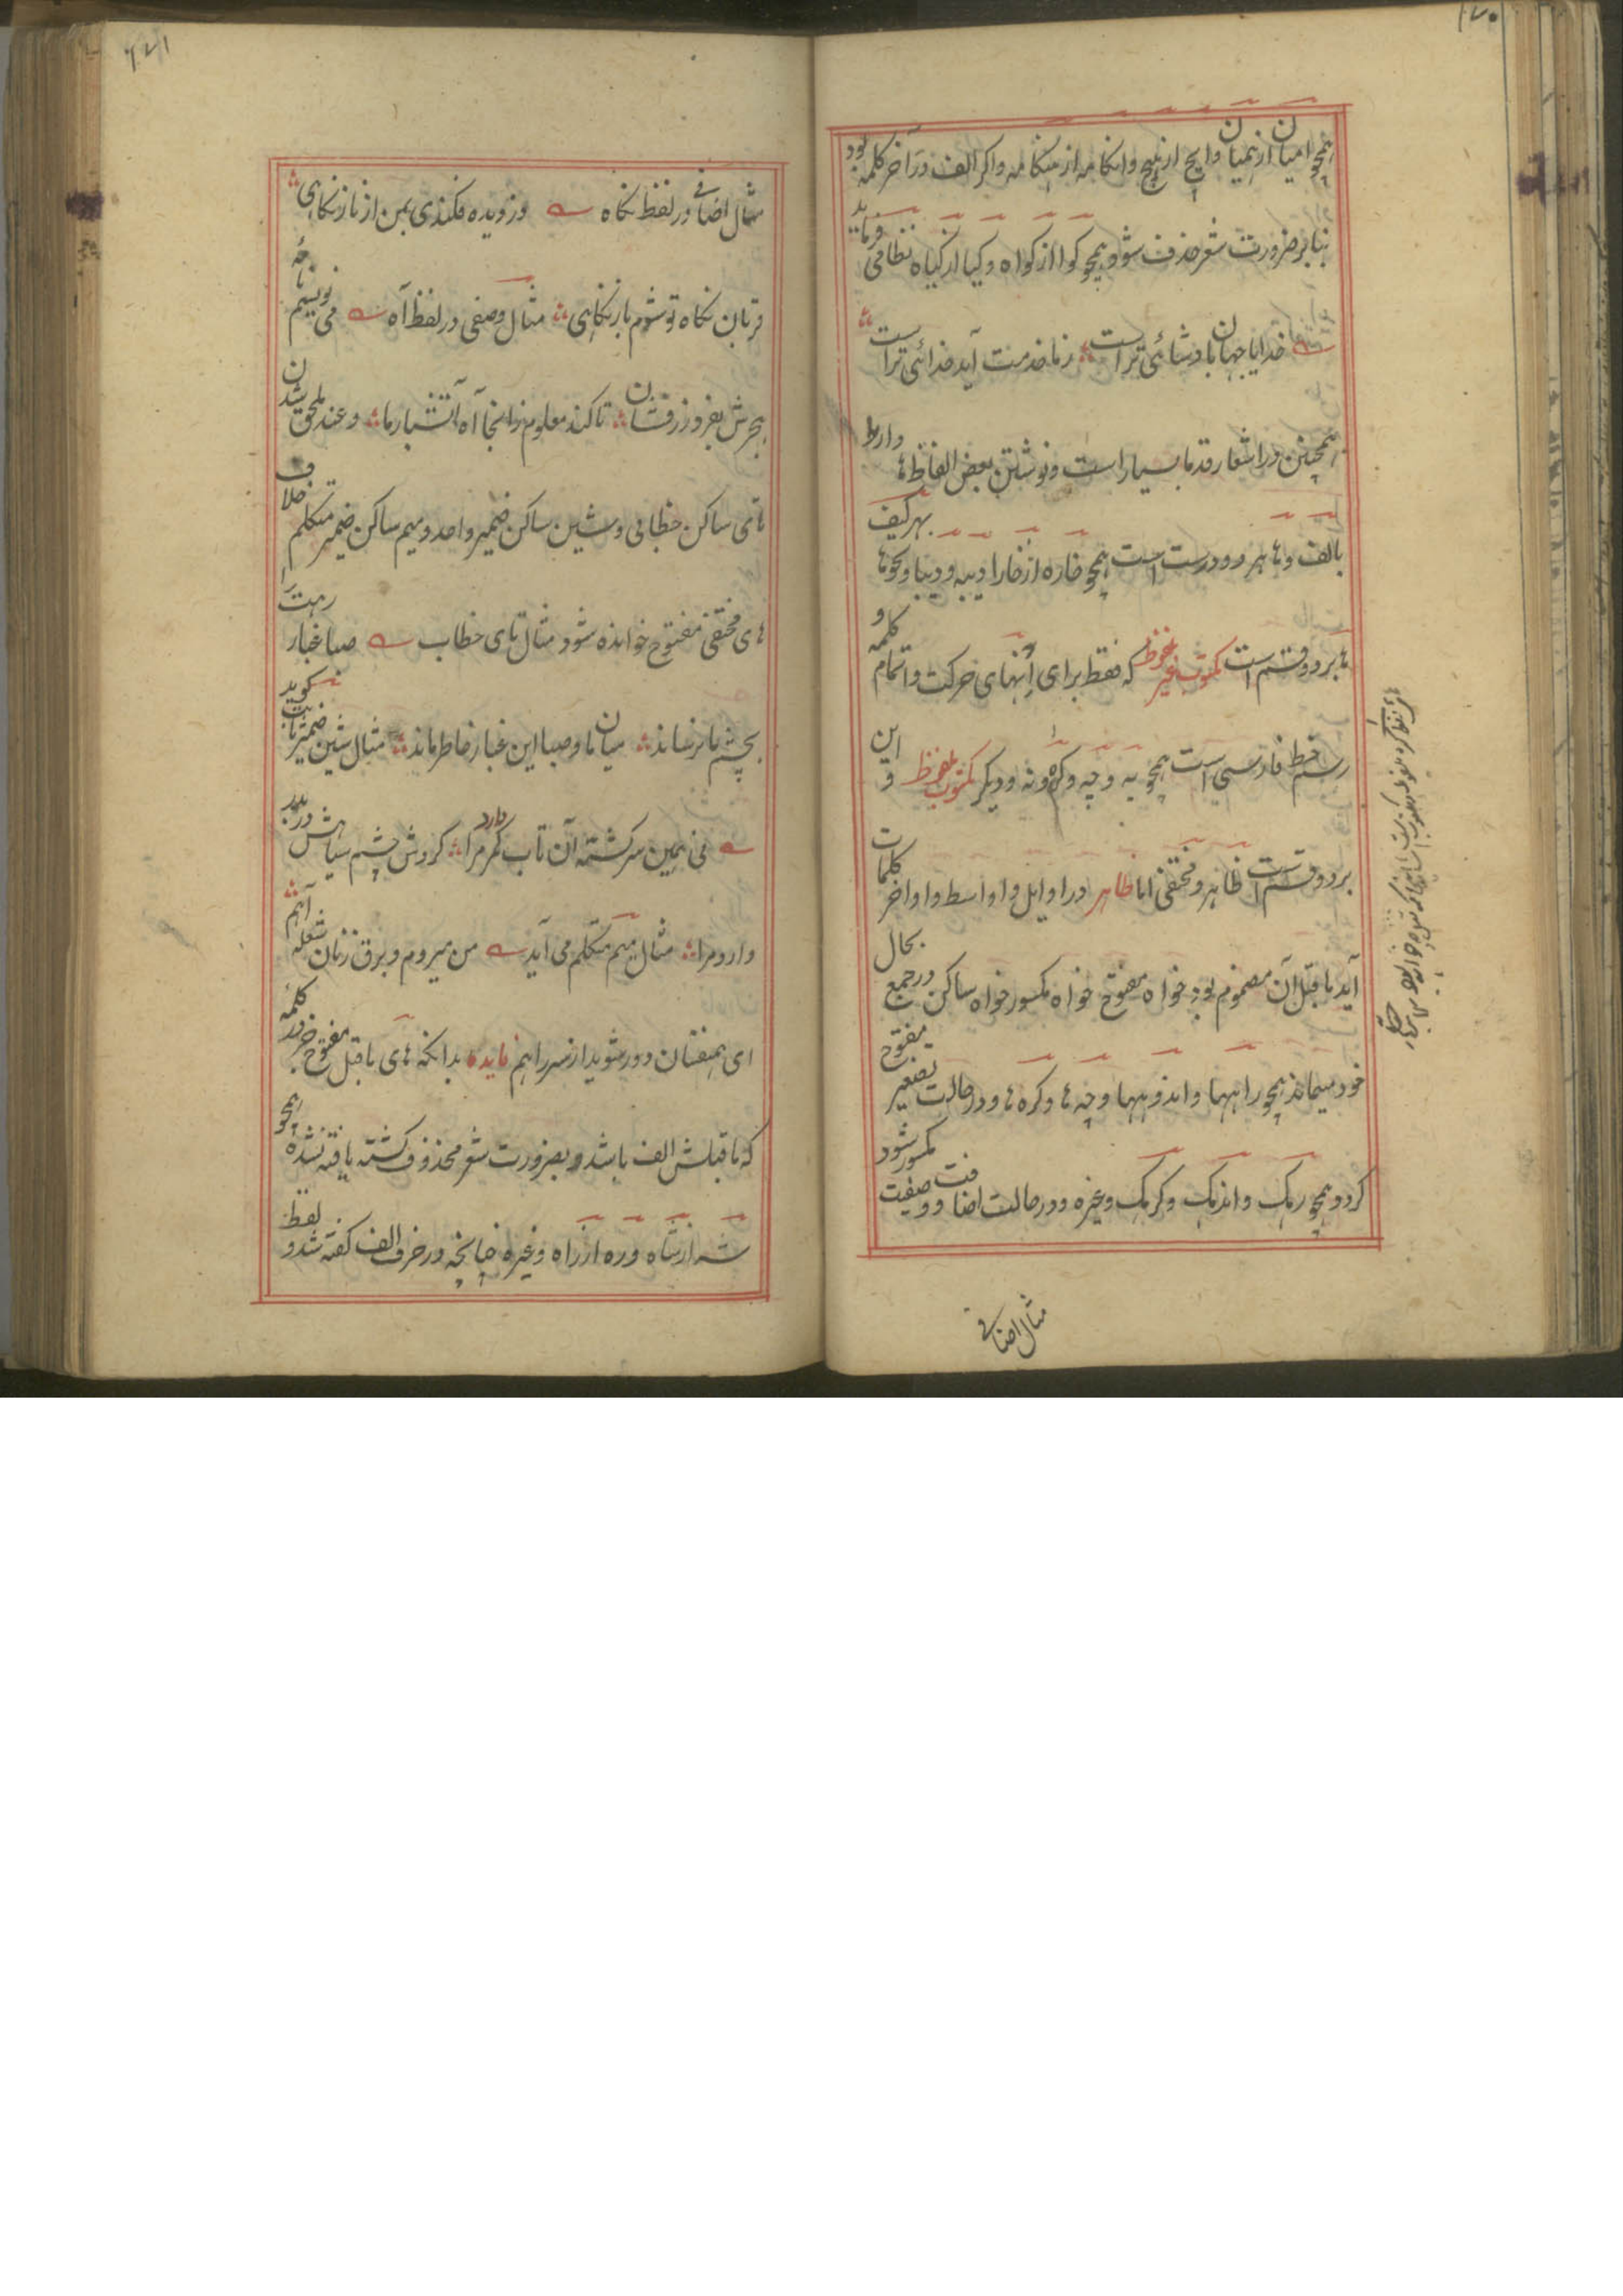 ۱۷۰
همچو امیان از همیان و ایچ از هیچ و انکامه از هنکامه و اکر الف در آخر کلمه بود
بنابر ضرورت شعر حذف شود همچو کوا از کواه و کیا از کیاه نظامی فرماید
خدایا جهان بادشائی تراست زما خدمت آید خدائی تراست
همچنین در اشعار قدما بسیار است و نوشتن بعض الفاظ ها دار
بالف و ها هر دو درست است همچو خاره از خارا و دیبه و دیبا و نحوها بهر کیف
ها بر دو قسم است مکتوب غیر ملفوظ که فقط برای انهای حرکت و اتمام کلمه و
رسم خط فارسی است همچو به و چه و کره و نه و دیکر مکتوب ملفوظ و این
بر دو قسم است ظاهر و مختفی اما ظاهر در اوایل و اواسط و اواخر کلمات
آید ماقبل آن مضموم بود خواه مفتوح خواه مکسور خواه ساکن و در جمع بحال
خود میماند همچو راهها و اندوهها و چه ها و کره ها و در حالت تصغیر مفتوح
کردد همچو رهک و اندهک و کرهک و غیره و در حالت اضافت و وصفیت مکسور شود
مثال اضافی
۱۷۱
مثال اضافی در لفظ نکاه دزدیده فکندی بمن از ناز نکاهی
قربان نکاه تو شوم باز نکاهی مثال وصفی در لفظ آه می نویسیم نامهٔ
بجرش بفروز رقتان تا کند معلوم زانجا آه آتشبار ما و عند ملحق شدن
تای ساکن خطابی و شین ساکن ضمیر واحد و میم ساکن ضمیر متکلم خلاف
های مختفی مفتوح خوانده شود مثال تای خطاب صبا غبار رهت را
بچشم ما نرساند میان ما و صبا این غبار خاطر ماند مثال شین ضمیر ثابت کوید
نی همین سرکشته آن تاب کمر دارد مرا کردش چشم سیاهش در بدر
دارد مرا مثال میم متکلم می آید من میروم و برق زنان شعله آهم
ای همنفسان دور شوید از سر راهم فایده بدانکه های ماقبل مفتوح در آخر کلمهٔ
که ماقبلش الف باشد و بضرورت شعر محذوف کشته یافته نشده همچو
شه از شاه و ره از راه و غیره چنانچه در حرف الف کفته شد و لفظ